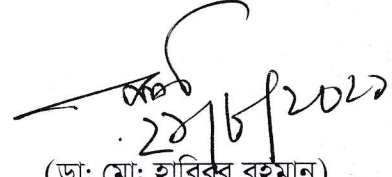 ২৯/৮/২০২১
(ডা: মো: হাবিবুর রহমান)